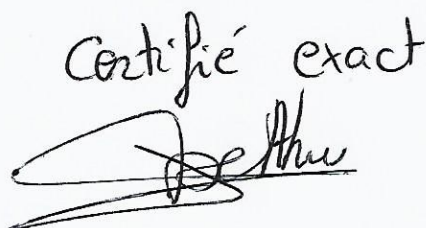 Certifié exact